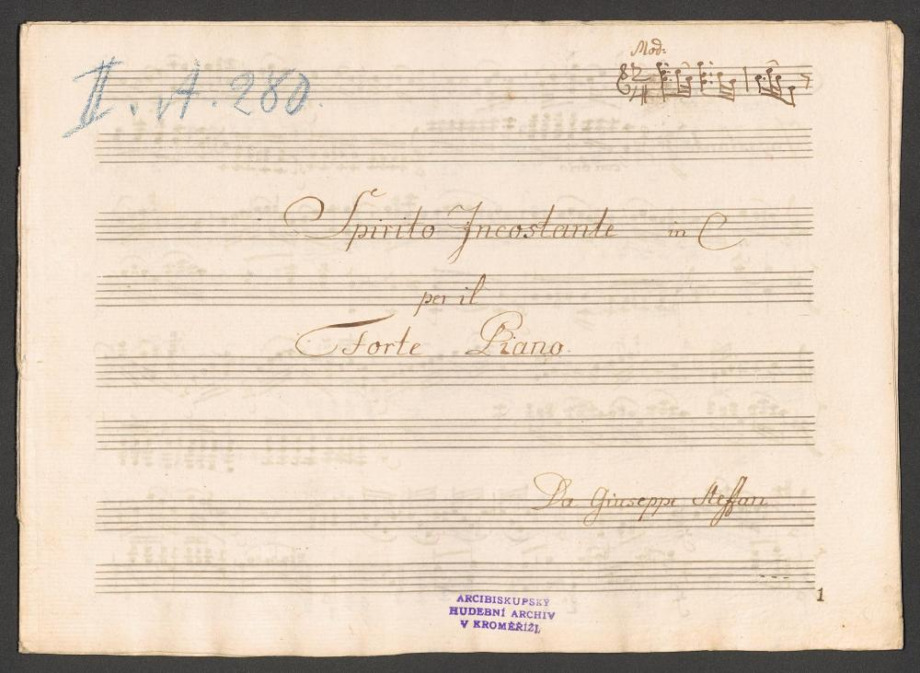 II. A. 280.
Mod:
Spirito Incostante in C
per il
Forte Piano.
Da Giuseppe Steffan
ARCIBISKUPSKÝ
HUDEBNÍ ARCHIV
V KROMĚŘÍŽI.
1